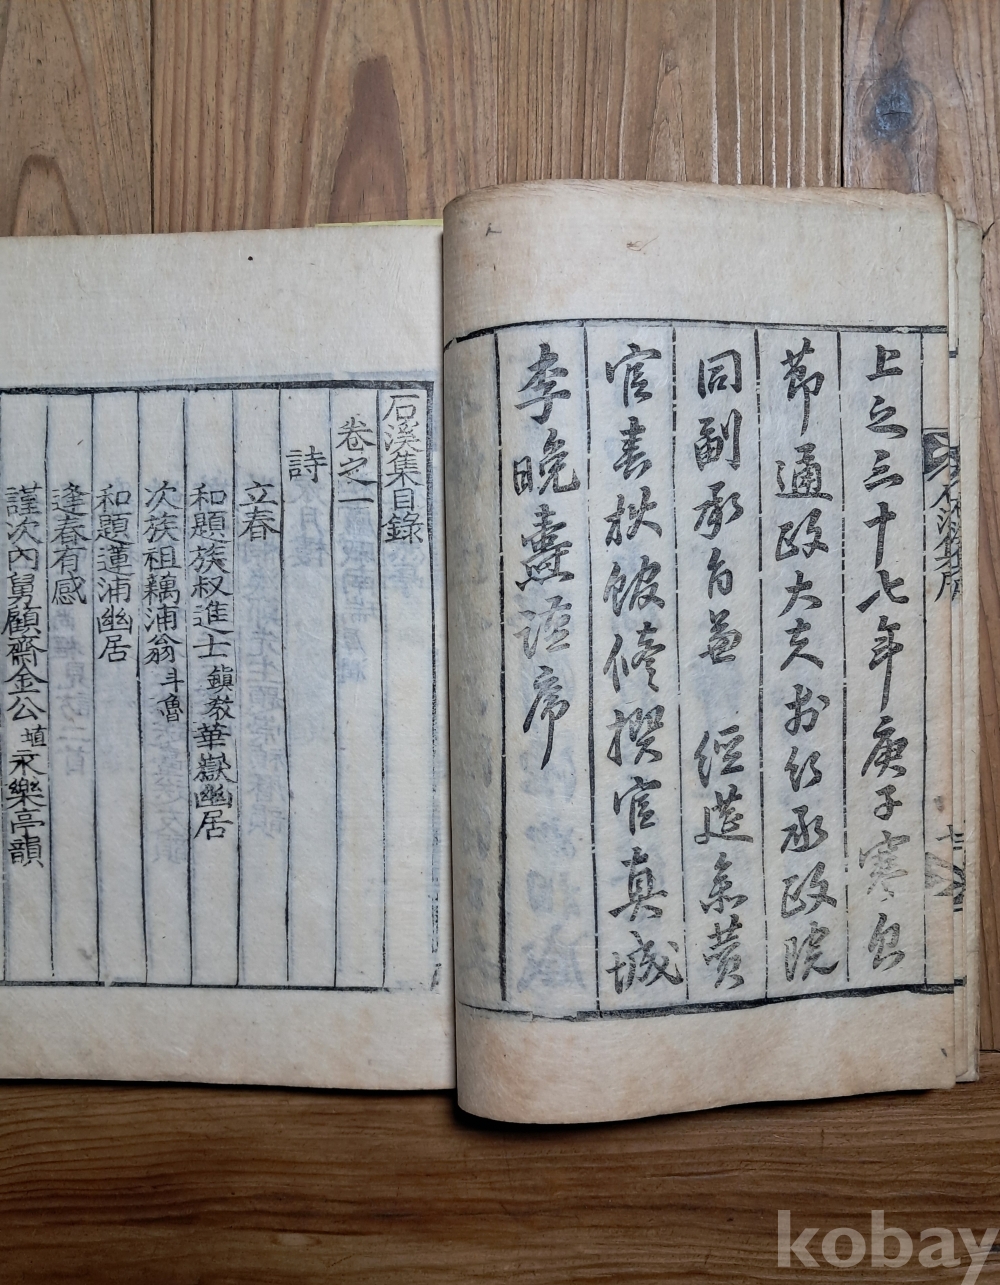 石溪集序
上之三十七年庚子寒食
節通政大夫
承政院
同副承旨兼 經筵參贊
官春秋館修撰官真城
李晚燾謹序
石溪集目錄
卷之一
詩
立春
和題族叔進士鎭敎華嶽幽居
次族祖藕浦翁斗魯
和題蓮浦幽居
逢春有感
謹次內舅顧齋金公㙆永樂亭韻
kobay